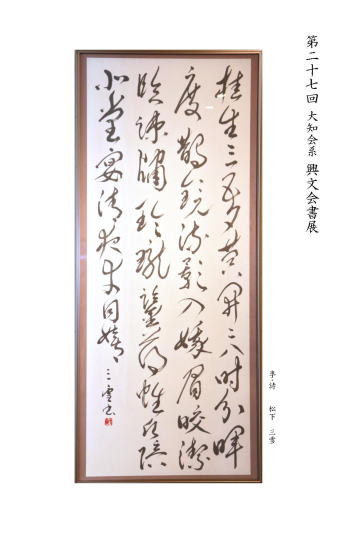 第二十七回 大知会系 興文会書展
桂生三五夕蓂開二八時分暉
度鵲鏡流影入蛾眉皎潔
臨疎牖玲瓏鑒薄帷願陪
北堂宴清夜幸同嬉 三雪書
李・詩 松下 三雪